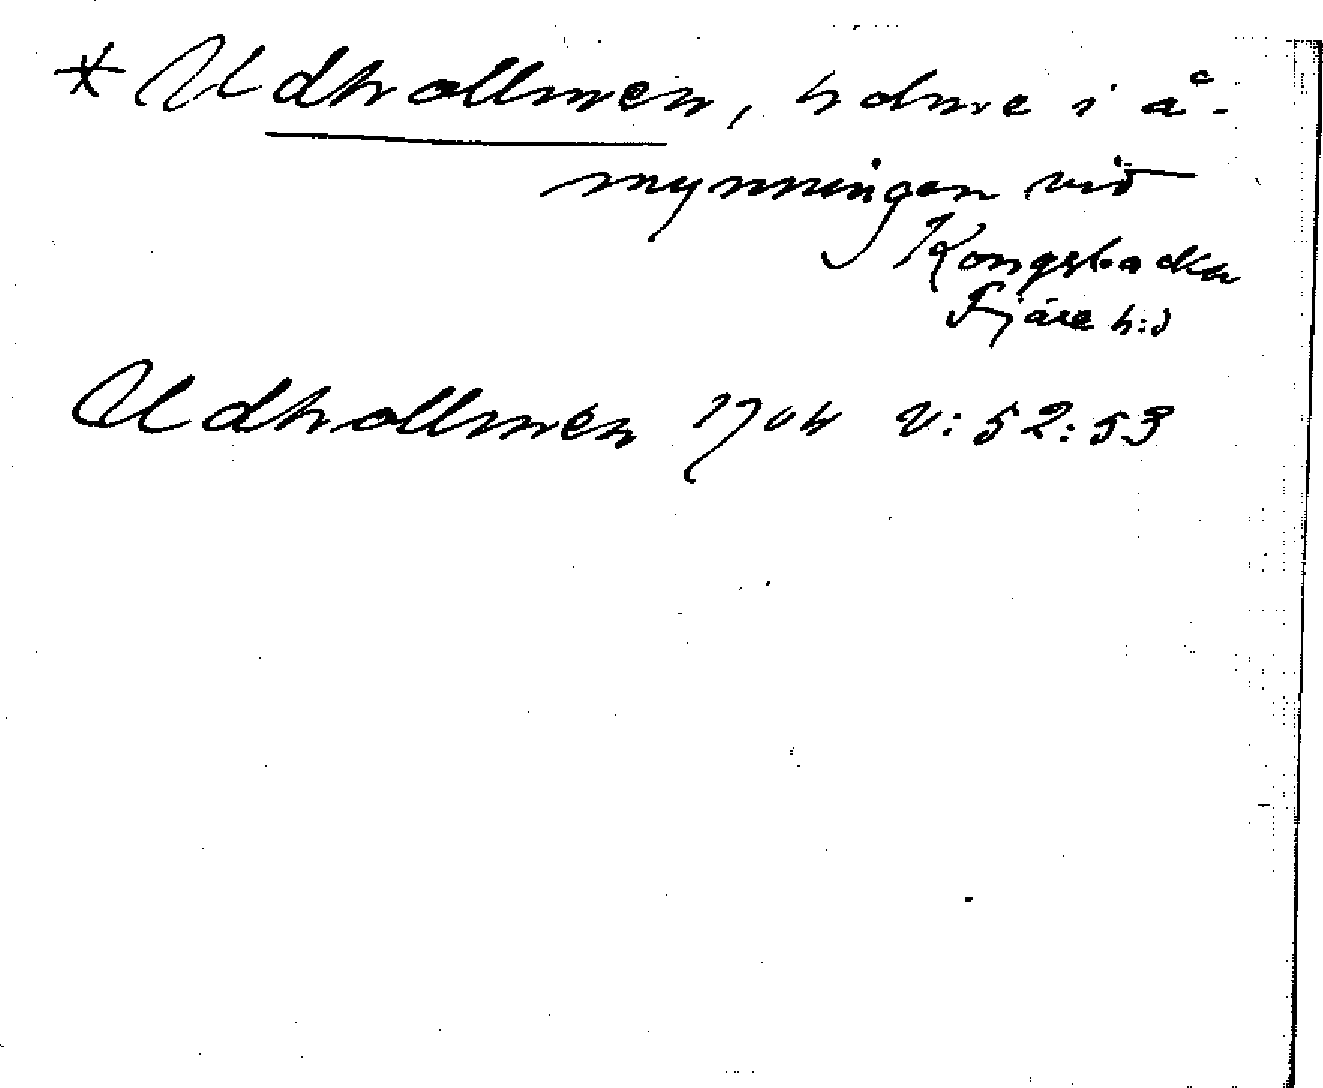 * Udhollmen, holme i å-
mynningen vid
Kongsbacka
Fjäre h:d
Udhollmen 1704 V: 52: 53